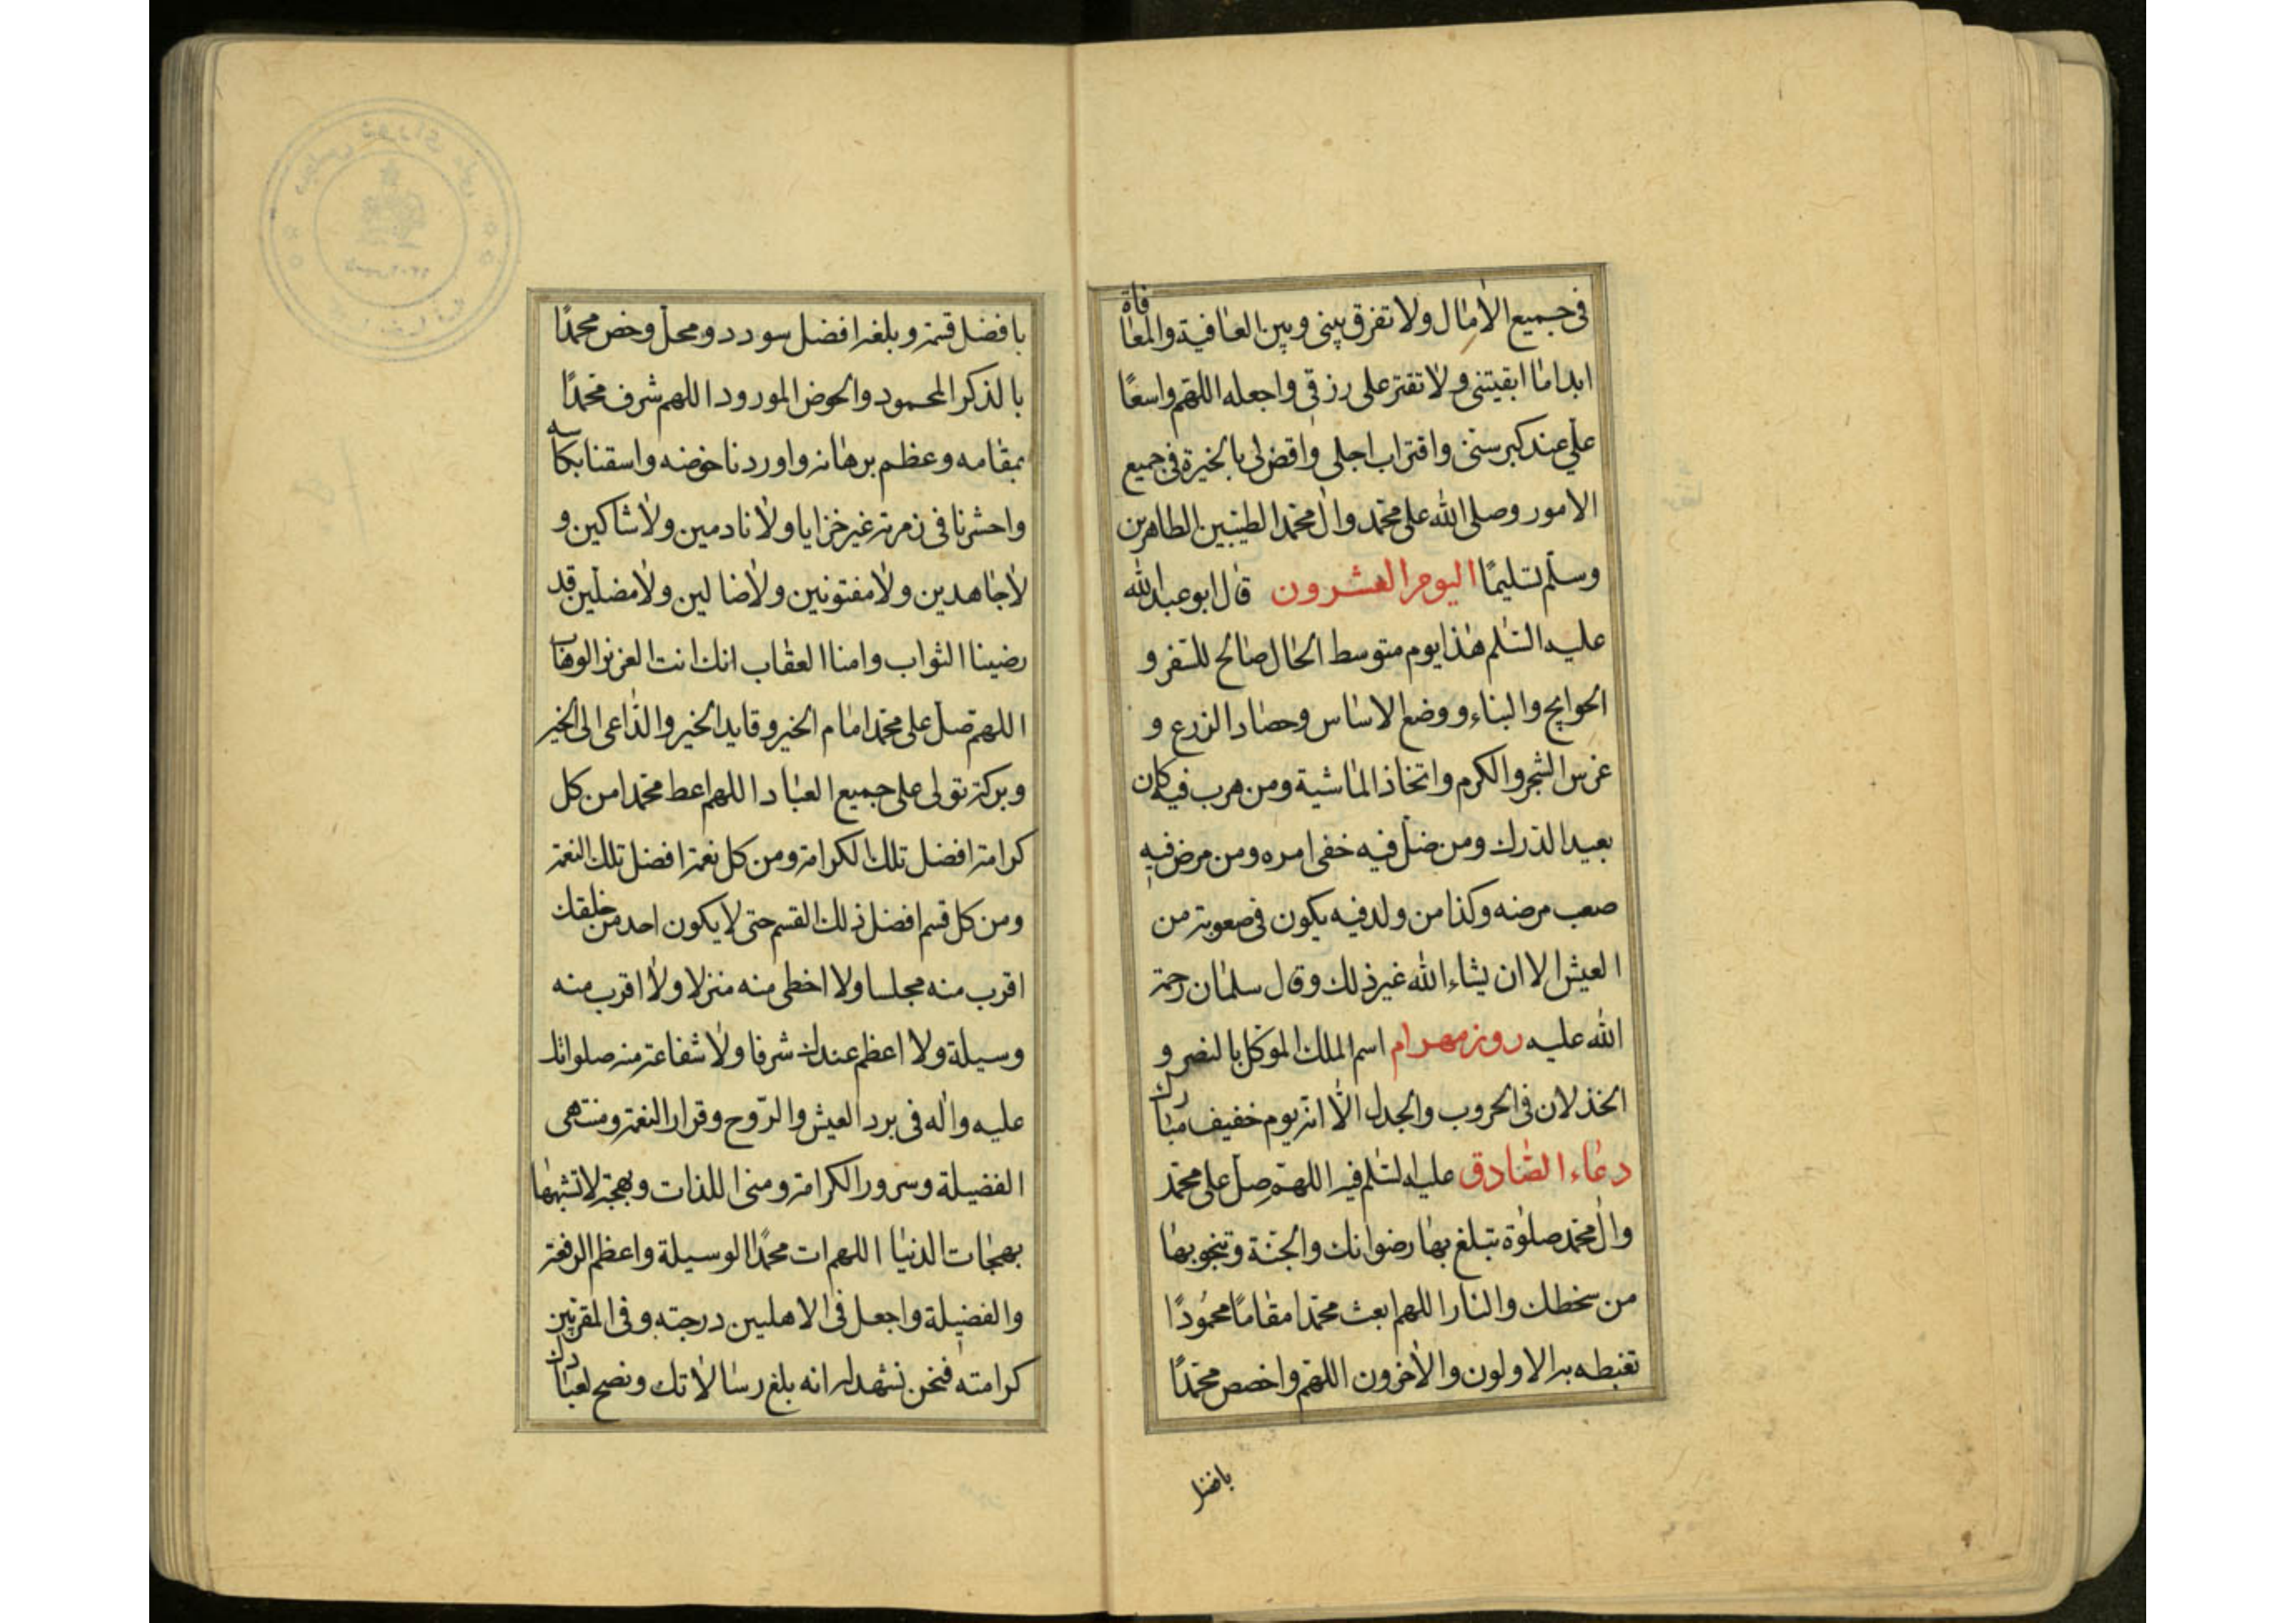 فى جميع الأمال ولا تفرق بينى وبين العافية والمعافاة
ابدا ما ابقيتنى ولا تقتر على رزقى واجعله اللهم واسعًا
علي عند كبر سنى واقتراب اجلى واقض لى بالخيرة فى جميع
الامور وصلى الله على محمد وال محمد الطيبين الطاهرين
وسلم تسليمًا اليوم العشرون قال ابو عبد الله
عليه السلم هذا يوم متوسط الحال صالح للسفر و
الحوايج والبناء ووضع الاساس وحصاد الزرع و
غرس الشجر والكرم واتخاذ الماشية ومن هرب فيه كان
بعيد الدرك ومن ضل فيه خفى امره ومن مرض فيه
صعب مرضه وكذا من ولد فيه يكون فى صعوبة من
العيش الا ان يشاء الله غير ذلك وقال سلمان رحمة
الله عليه روز مهرام اسم الملك الموكل بالنصر و
الخذلان فى الحروب والجدل الّا انه يوم خفيف مبارك
دعاء الصادق عليه السلم فيه اللهم صل على محمد
وال محمد صلوة تبلغ بها رضوانك والجنة وتنجو بها
من سخطك والنار اللهم ابعث محمدا مقامًا محمُودًا
تغبطه به الاولون والأخرون اللهم واخصص محمدًا
بافضل
بافضل قسم وبلغه افضل سودد ومحل وخص محمدًا
بالذكر المحمود والحوض المورود اللهم شرف محمدًا
بمقامه وعظم برهانه واوردنا حوضه واسقنا بكاسه
واحشرنا فى زمرته غير خزايا ولا نادمين ولا شاكين و
لا جاهدين ولا مفتونين ولا ضالين ولا مضلين قد
رضينا الثواب وامنا العقاب انك انت العزيز الوهاب
اللهم صل على محمد امام الخير وقايد الخير والداعى الى الخير
وبركة توفى على جميع العباد اللهم اعط محمدا من كل
كرامة افضل تلك الكرامة ومن كل نعمة افضل تلك النعمة
ومن كل قسم افضل ذلك القسم حتى لا يكون احد من خلقك
اقرب منه مجلسا ولا احظى منه منزلا ولا اقرب منه
وسيلة ولا اعظم عندك شرفا ولا شفاعة منه صلواتك
عليه واله فى برد العيش والرّوح وقرار النعمة ومنتهى
الفضيلة وسرور الكرامة ومنى اللذات وبهجة لا تشبهها
بهجات الدنيا اللهم ات محمدًا الوسيلة واعظم الرفعة
والفضيلة واجعل فى الاهليين درجته وفى المقربين
كرامته فنحن نشهد له انه بلغ رسالاتك ونصح لعبادك